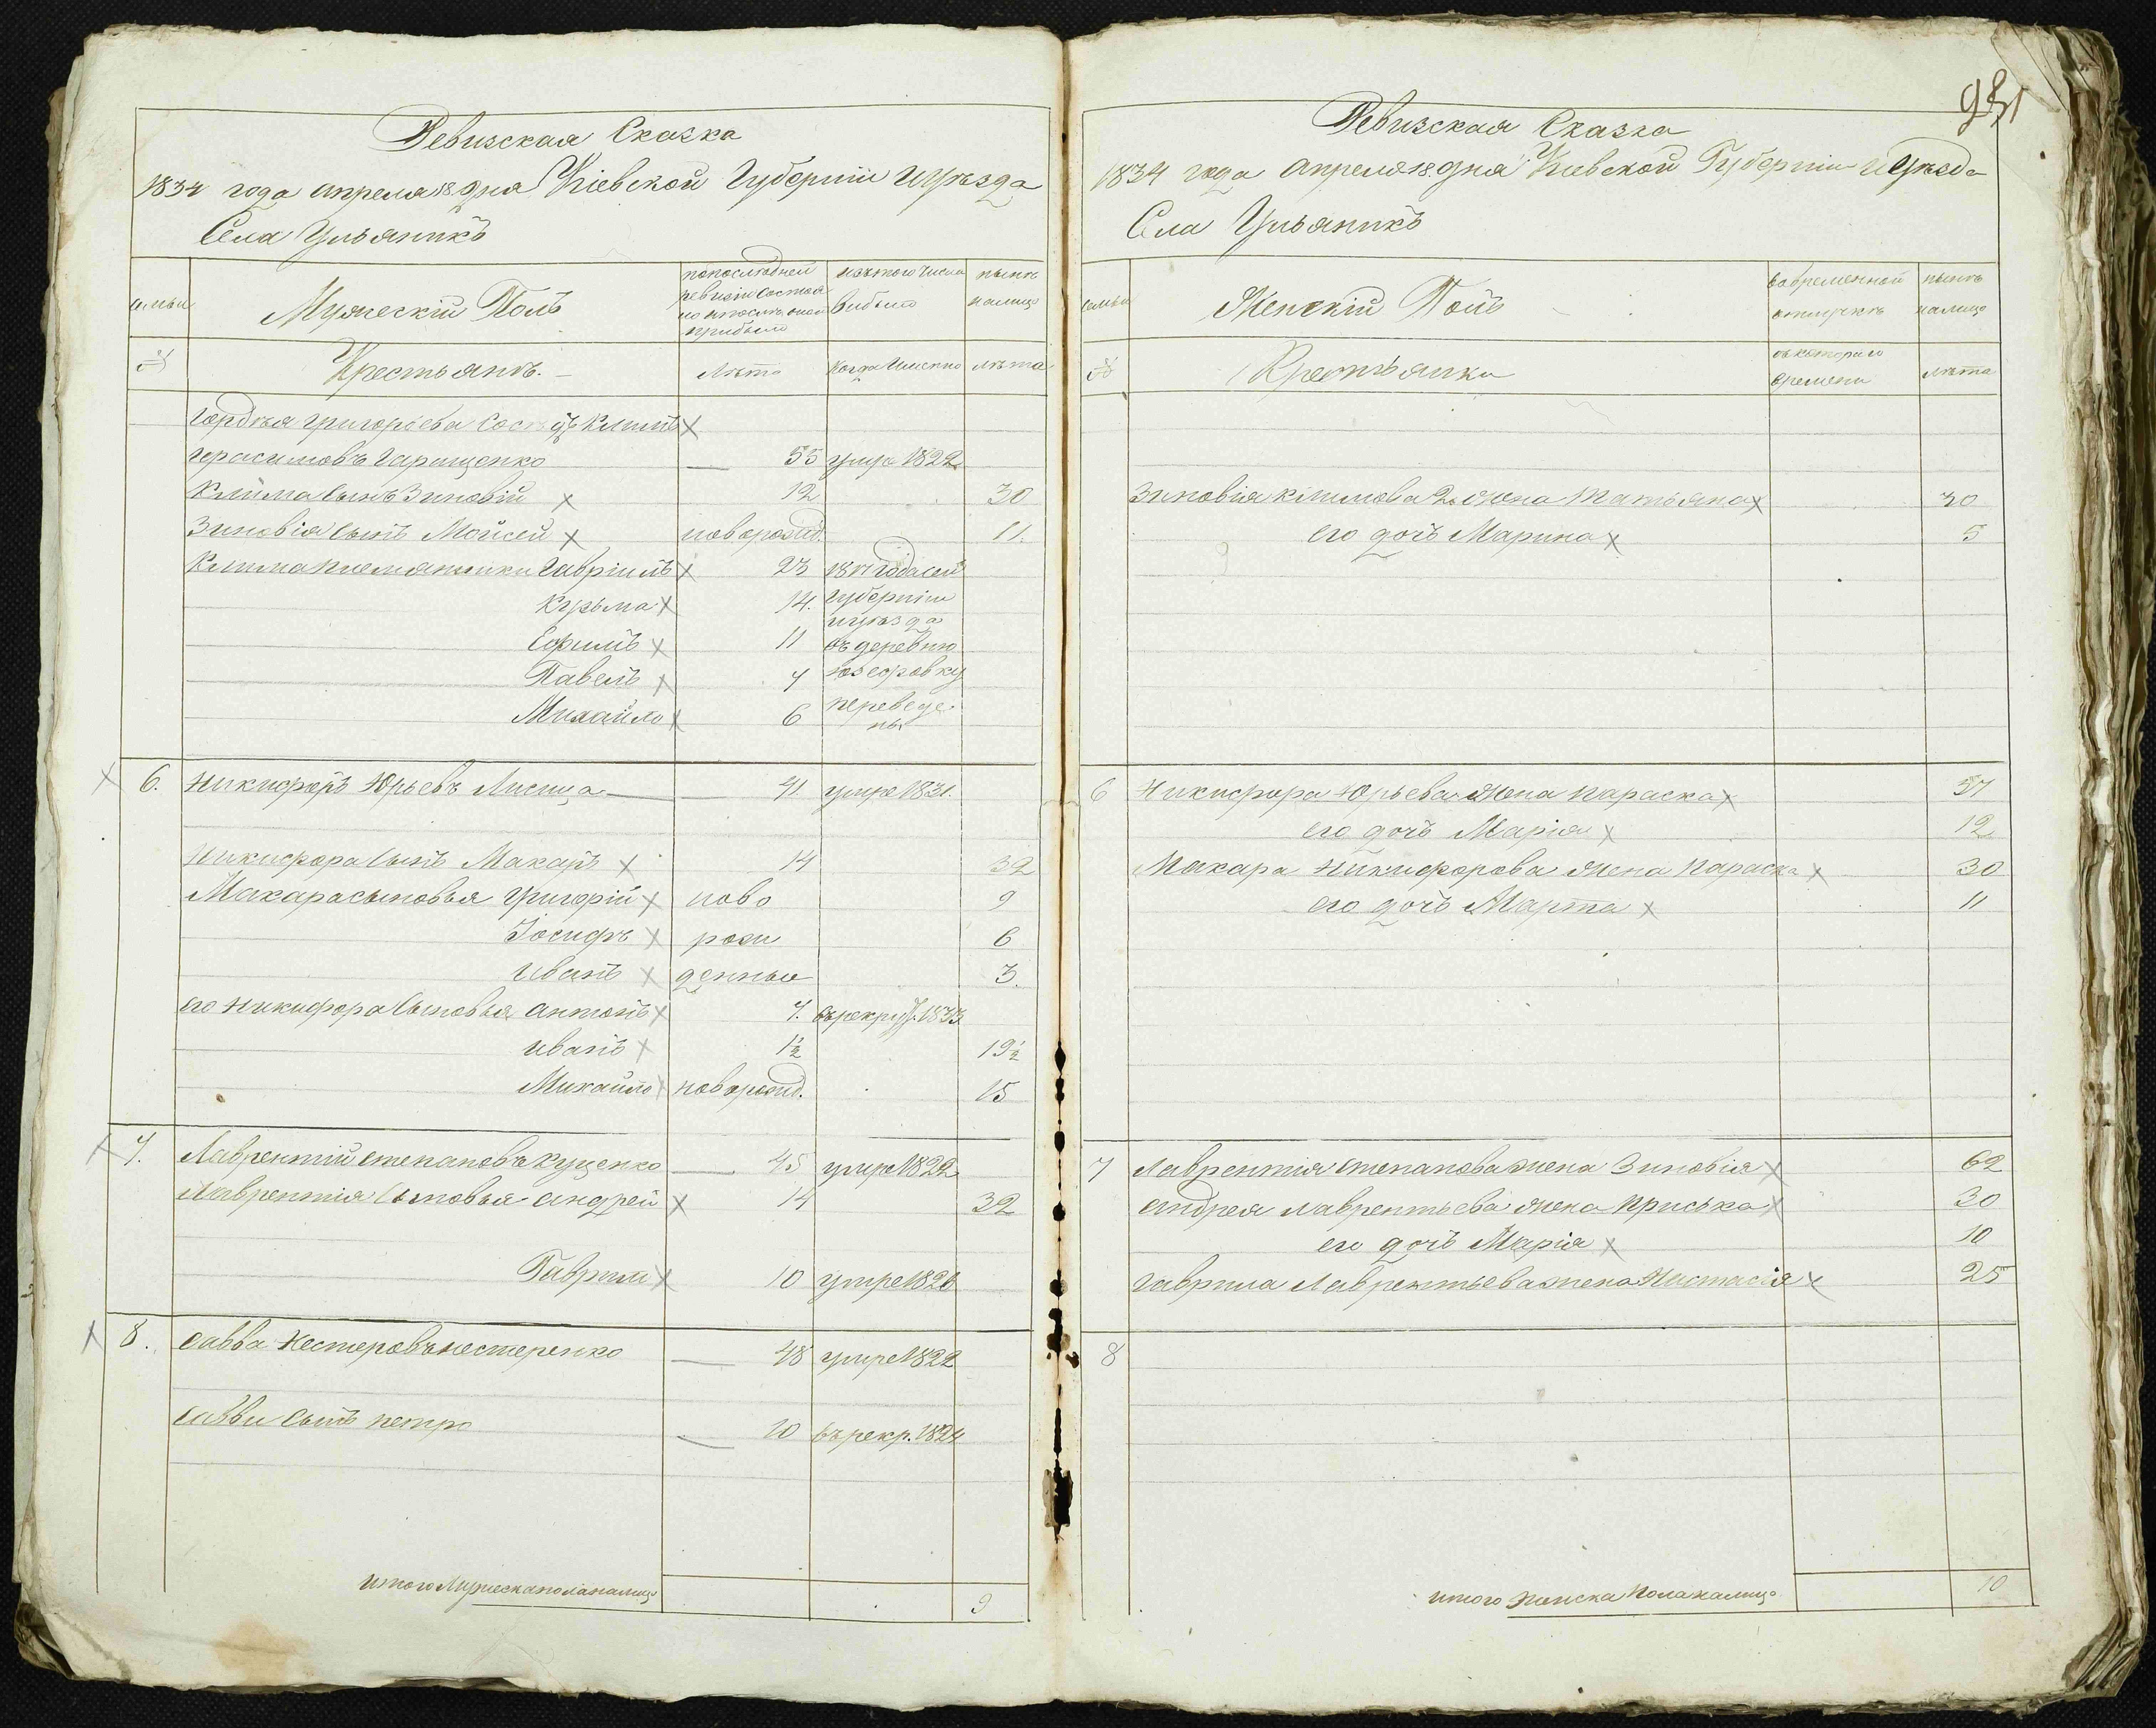 Ревизская Сказка
1834 года апреля 18 дня Кіевской Губерніи и уѣзда
Села Ульяникъ
семьи
Мужескій Полъ
по последней ревизіи состояло и после оной прибыло
изъ того числа выбыло
нынѣ налицо
№
Крестьянъ.
Лѣта
когда имянно
лѣта
Гордѣя Григорьева сосѣдъ Климъ
Герасимовъ Гаращенко — 55 умре 1822
Клима сынъ Зиновій 12 30
Зиновія сынъ Мойсей новорожд. 11.
Клима племянники Гавріилъ 23 1817 года сей
Кузьма 14. Губерніи
и уѣзда
Ефимъ 11 въ деревню
Павелъ 7 Юзефовку
Михайло 6 переведе-
ны
6. Никифоръ Юрьевъ Лисица — 41 умре 1831.
Никифора сынъ Макаръ 14 32
Макара сыновья Григорій ново 9
Іосифъ рож 6
Иванъ денные 3.
его Никифора сыновья Антонъ 7. въ рекрут. 1833
Иванъ 1½ 19½
Михайло новорожд. 15
7. Лаврентій Степановъ Куценко — 45 умре 1822
Лаврентія сыновья Андрей 14 32
Гаврило 10 умре 1826
8. Савва Нестеровъ Нестеренко — 48 умре 1822
Саввы сынъ Петро — 20 въ рекр. 1824
итого мужеска пола налицо 9
951
Ревизская Сказка
1834 года апреля 18 дня Кіевской Губерніи и Уѣзда
Села Ульяникъ
семьи
Женскій Полъ
во временной отлучкѣ
нынѣ налицо
№
Крестьянки
съ котораго времени
лѣта
Зиновія Климова 2. жена Татьяна 30
его дочь Марина 5
6 Никифора Юрьева жена Параска 57
его дочь Марія 12
Макара Никифорова жена Параска 30
его дочь Марта 11
7 Лаврентія Степанова жена Зиновія 62
Андрея Лаврентьева жена Приська 30
его дочь Марія 10
Гаврила Лаврентьева жена Настасія 25
8
итого женска пола налицо 10